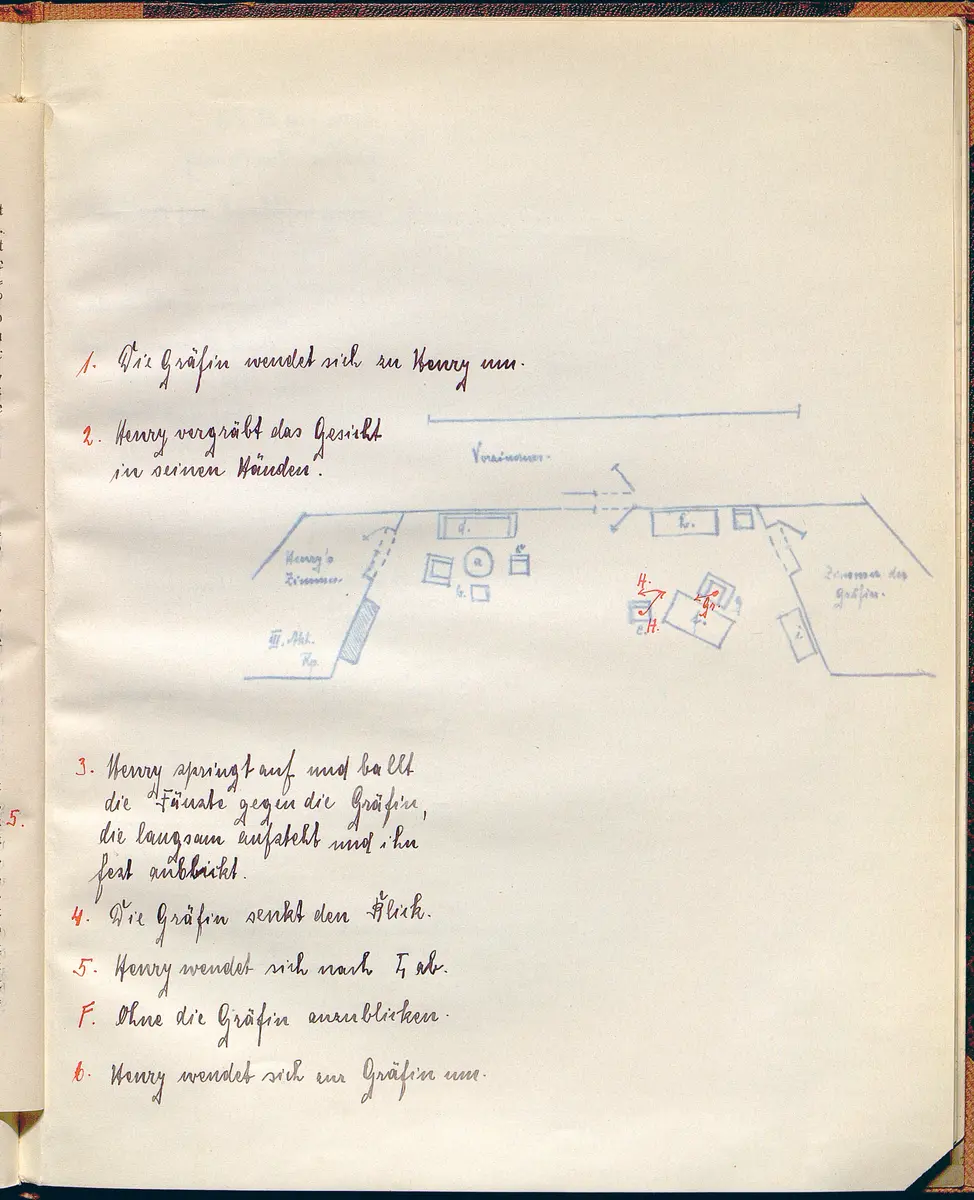 1. Die Gräfin wendet sich zu Henry um.
2. Henry vergräbt das Gesicht
in seinen Händen.
Vorzimmer.
d. h.
Henry's
Zimmer.
a
b.
Zimmer der
Gräfin.
H.
gr.
H.
e.
i
III. Akt.
3. Henry springt auf und ballt
die Fäuste gegen die Gräfin,
die langsam aufsteht und ihn
fest anblickt.
5.
4. Die Gräfin senkt den Blick.
5. Henry wendet sich nach ab.
F. Ohne die Gräfin anzublicken.
6. Henry wendet sich zur Gräfin um.